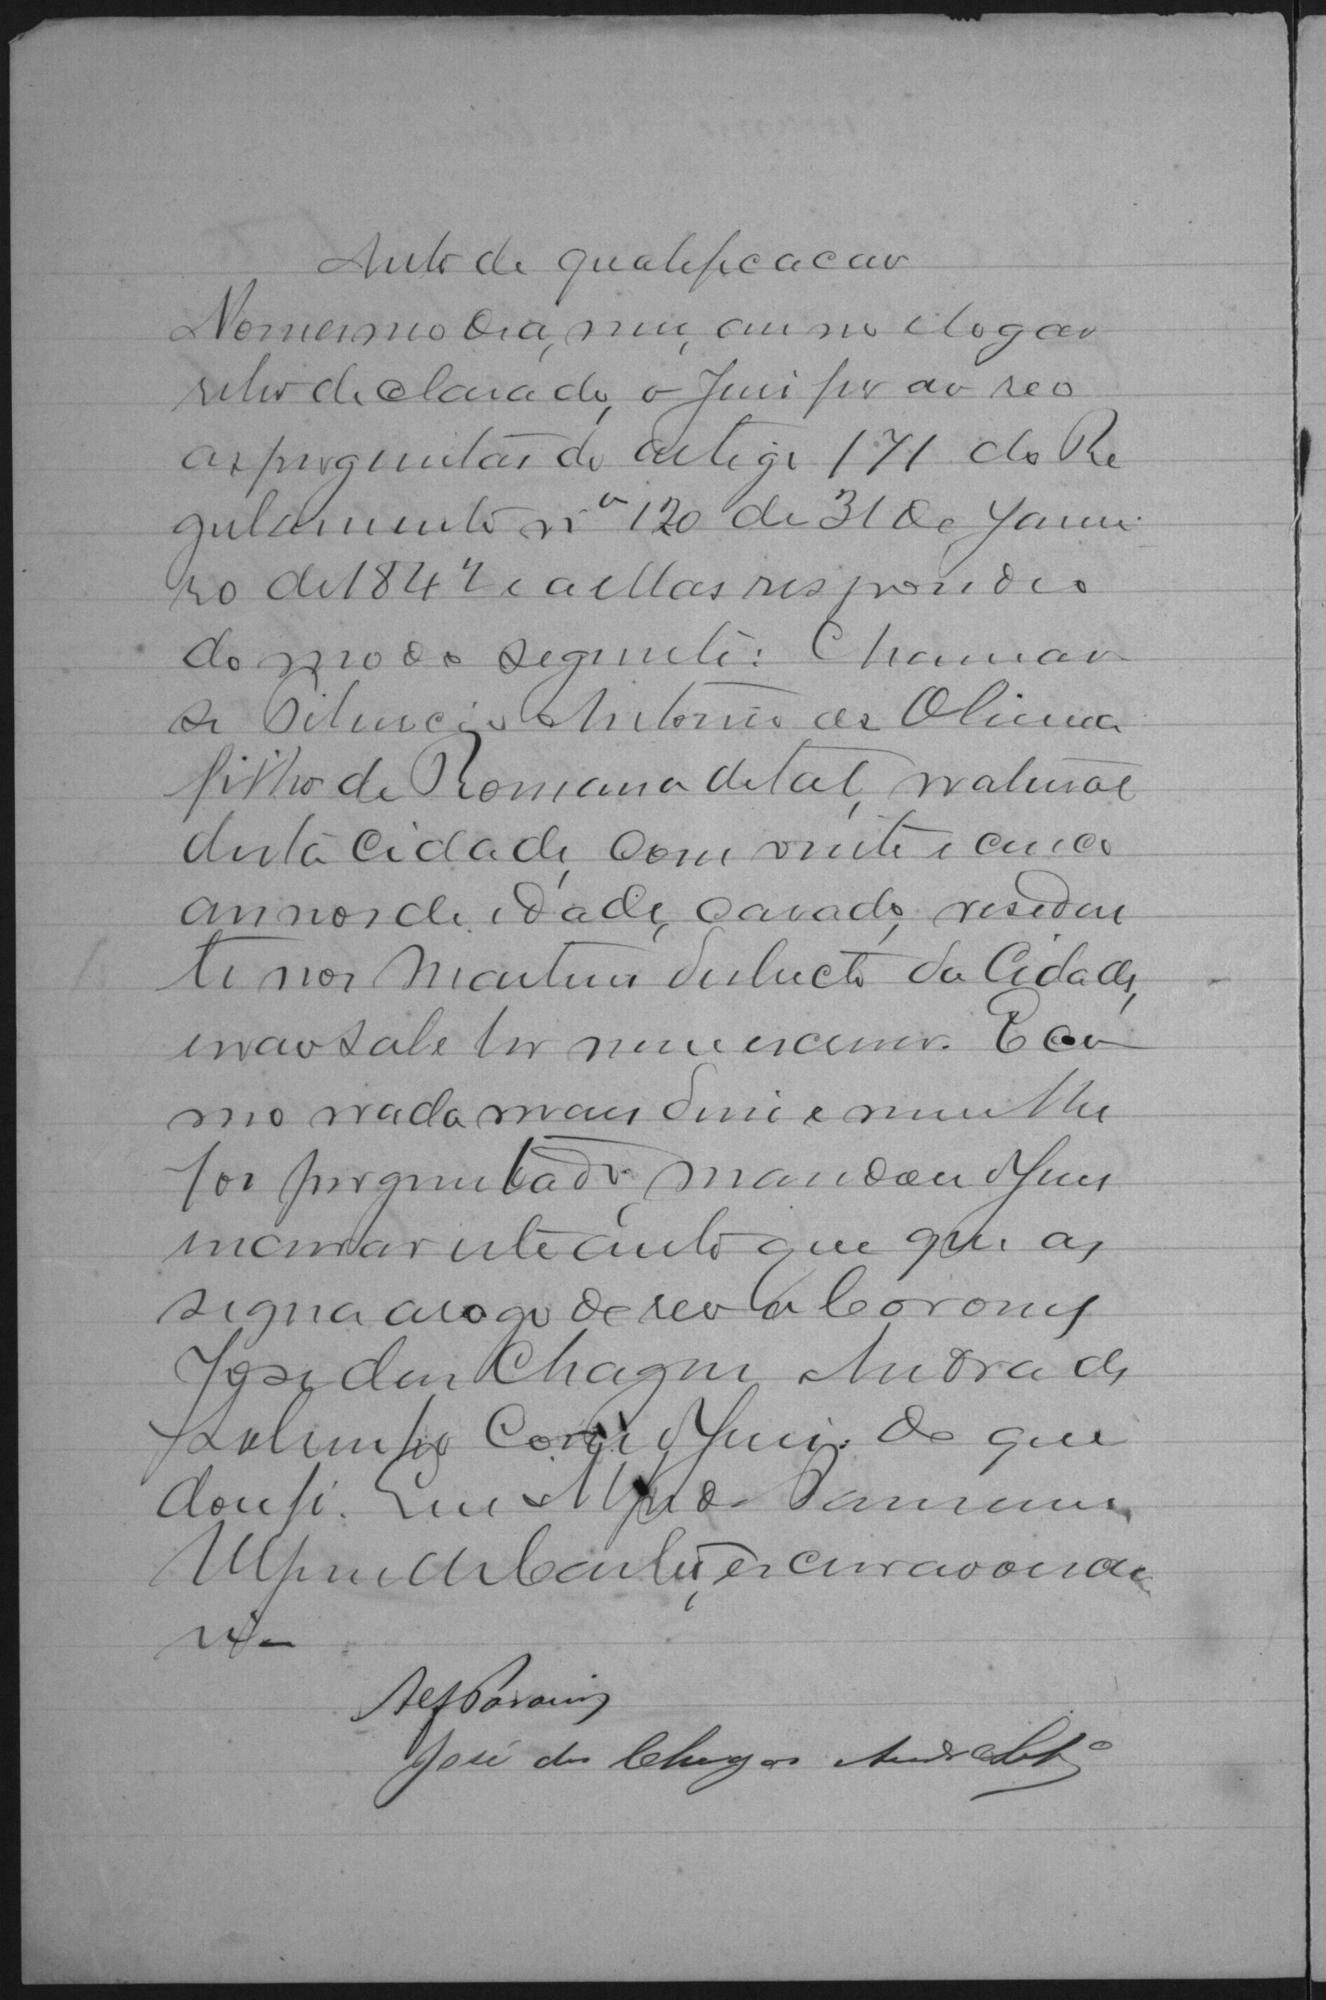 Auto de qualificacao
No mesmo dia, mez, anno e logar
retro declarado, o Juiz fez ao reo
as perguntas do artigo 171 do Re
gulamento nº 120 de 31 de Janei
ro de 1842 e a ellas respondeo
do modo seguinte: Chamar
se Antonio de Oliveira
filho de Romana de tal, natural
desta cidade, com vinte e cinco
annos de idade, casado, residen
te nos Martins districto da Cidade,
e nao sabe ler nem escrever. E co
mo nada mais disse e nem lhe
foi perguntado, mandou o Juiz
lavrar este auto que que as
signa a rogo do reo o Coronel
José das Chagas Andrade
Sobrinho com o Juiz. Do que
dou fé. Eu
de escrivao
vi-
José das Chagas Andre Sobº